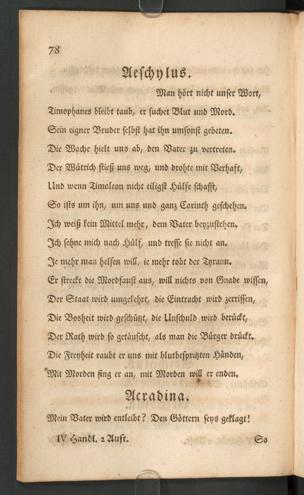 78
Aeschylus.
Man hört nicht unser Wort,
Timophanes bleibt taub, er suchet Blut und Mord.
Sein eigner Bruder selbst hat ihn umsonst gebeten.
Die Wache hielt uns ab, den Vater zu vertreten.
Der Wütrich stieß uns weg, und drohte mit Verhaft,
Und wenn Timoleon nicht eiligst Hülfe schafft,
So ists um ihn, um uns und ganz Corinth geschehen.
Ich weiß kein Mittel mehr, dem Vater beyzustehen.
Ich sehne mich nach Hülf, und treffe sie nicht an.
Je mehr man helfen will, ie mehr tobt der Tyrann.
Er streckt die Mordfaust aus, will nichts von Gnade wissen,
Der Staat wird umgekehrt, die Eintracht wird zerrissen,
Die Bosheit wird geschützt, die Unschuld wird berückt,
Der Rath wird so getäuscht, als man die Bürger drückt.
Die Freyheit raubt er uns mit blutbespritzten Händen,
Mit Morden fing er an, mit Morden will er enden.
Acradina.
Mein Vater wird entleibt? Den Göttern seys geklagt!
IV Handl. 2 Auft. So